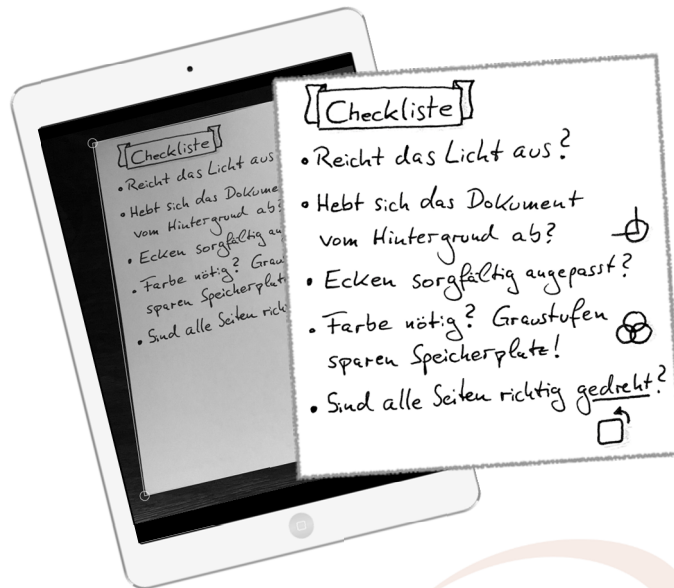 Checkliste
• Reicht das Licht aus
• Hebt sich das Dokume
vom Hintergrund ab?
• Ecken sorgfältig an
• Farbe nötig? Grau
sparen Speicherplatz
• Sind alle Seiten rich
Checkliste
• Reicht das Licht aus?
• Hebt sich das Dokument
vom Hintergrund ab?
• Ecken sorgfältig angepasst?
• Farbe nötig? Graustufen
sparen Speicherplatz!
• Sind alle Seiten richtig gedreht?